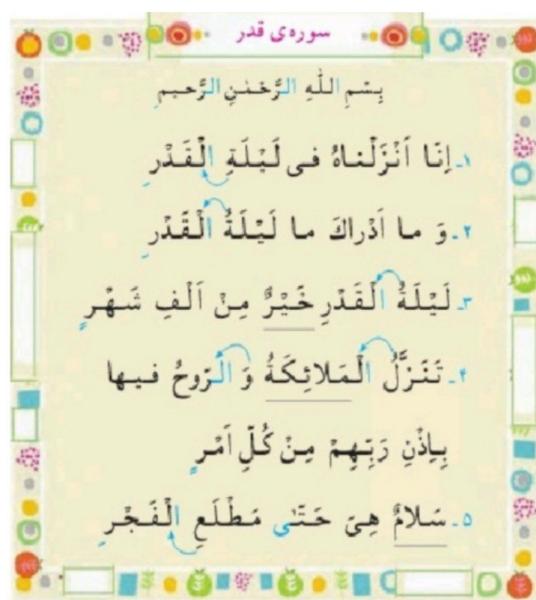 سوره‌ی قدر
بِسْمِ اللّٰهِ الرَّحْمٰنِ الرَّحیمِ
۱ـ اِنّا اَنْزَلْناهُ فی لَیْلَةِ الْقَدْرِ
۲ـ وَ ما اَدْراكَ ما لَیْلَةُ الْقَدْرِ
۳ـ لَیْلَةُ الْقَدْرِ خَیْرٌ مِنْ اَلْفِ شَهْرٍ
۴ـ تَنَزَّلُ الْمَلائِكَةُ وَ الرّوحُ فیها
بِاِذْنِ رَبِّهِمْ مِنْ كُلِّ اَمْرٍ
۵ـ سَلامٌ هِیَ حَتّٰی مَطْلَعِ الْفَجْرِ